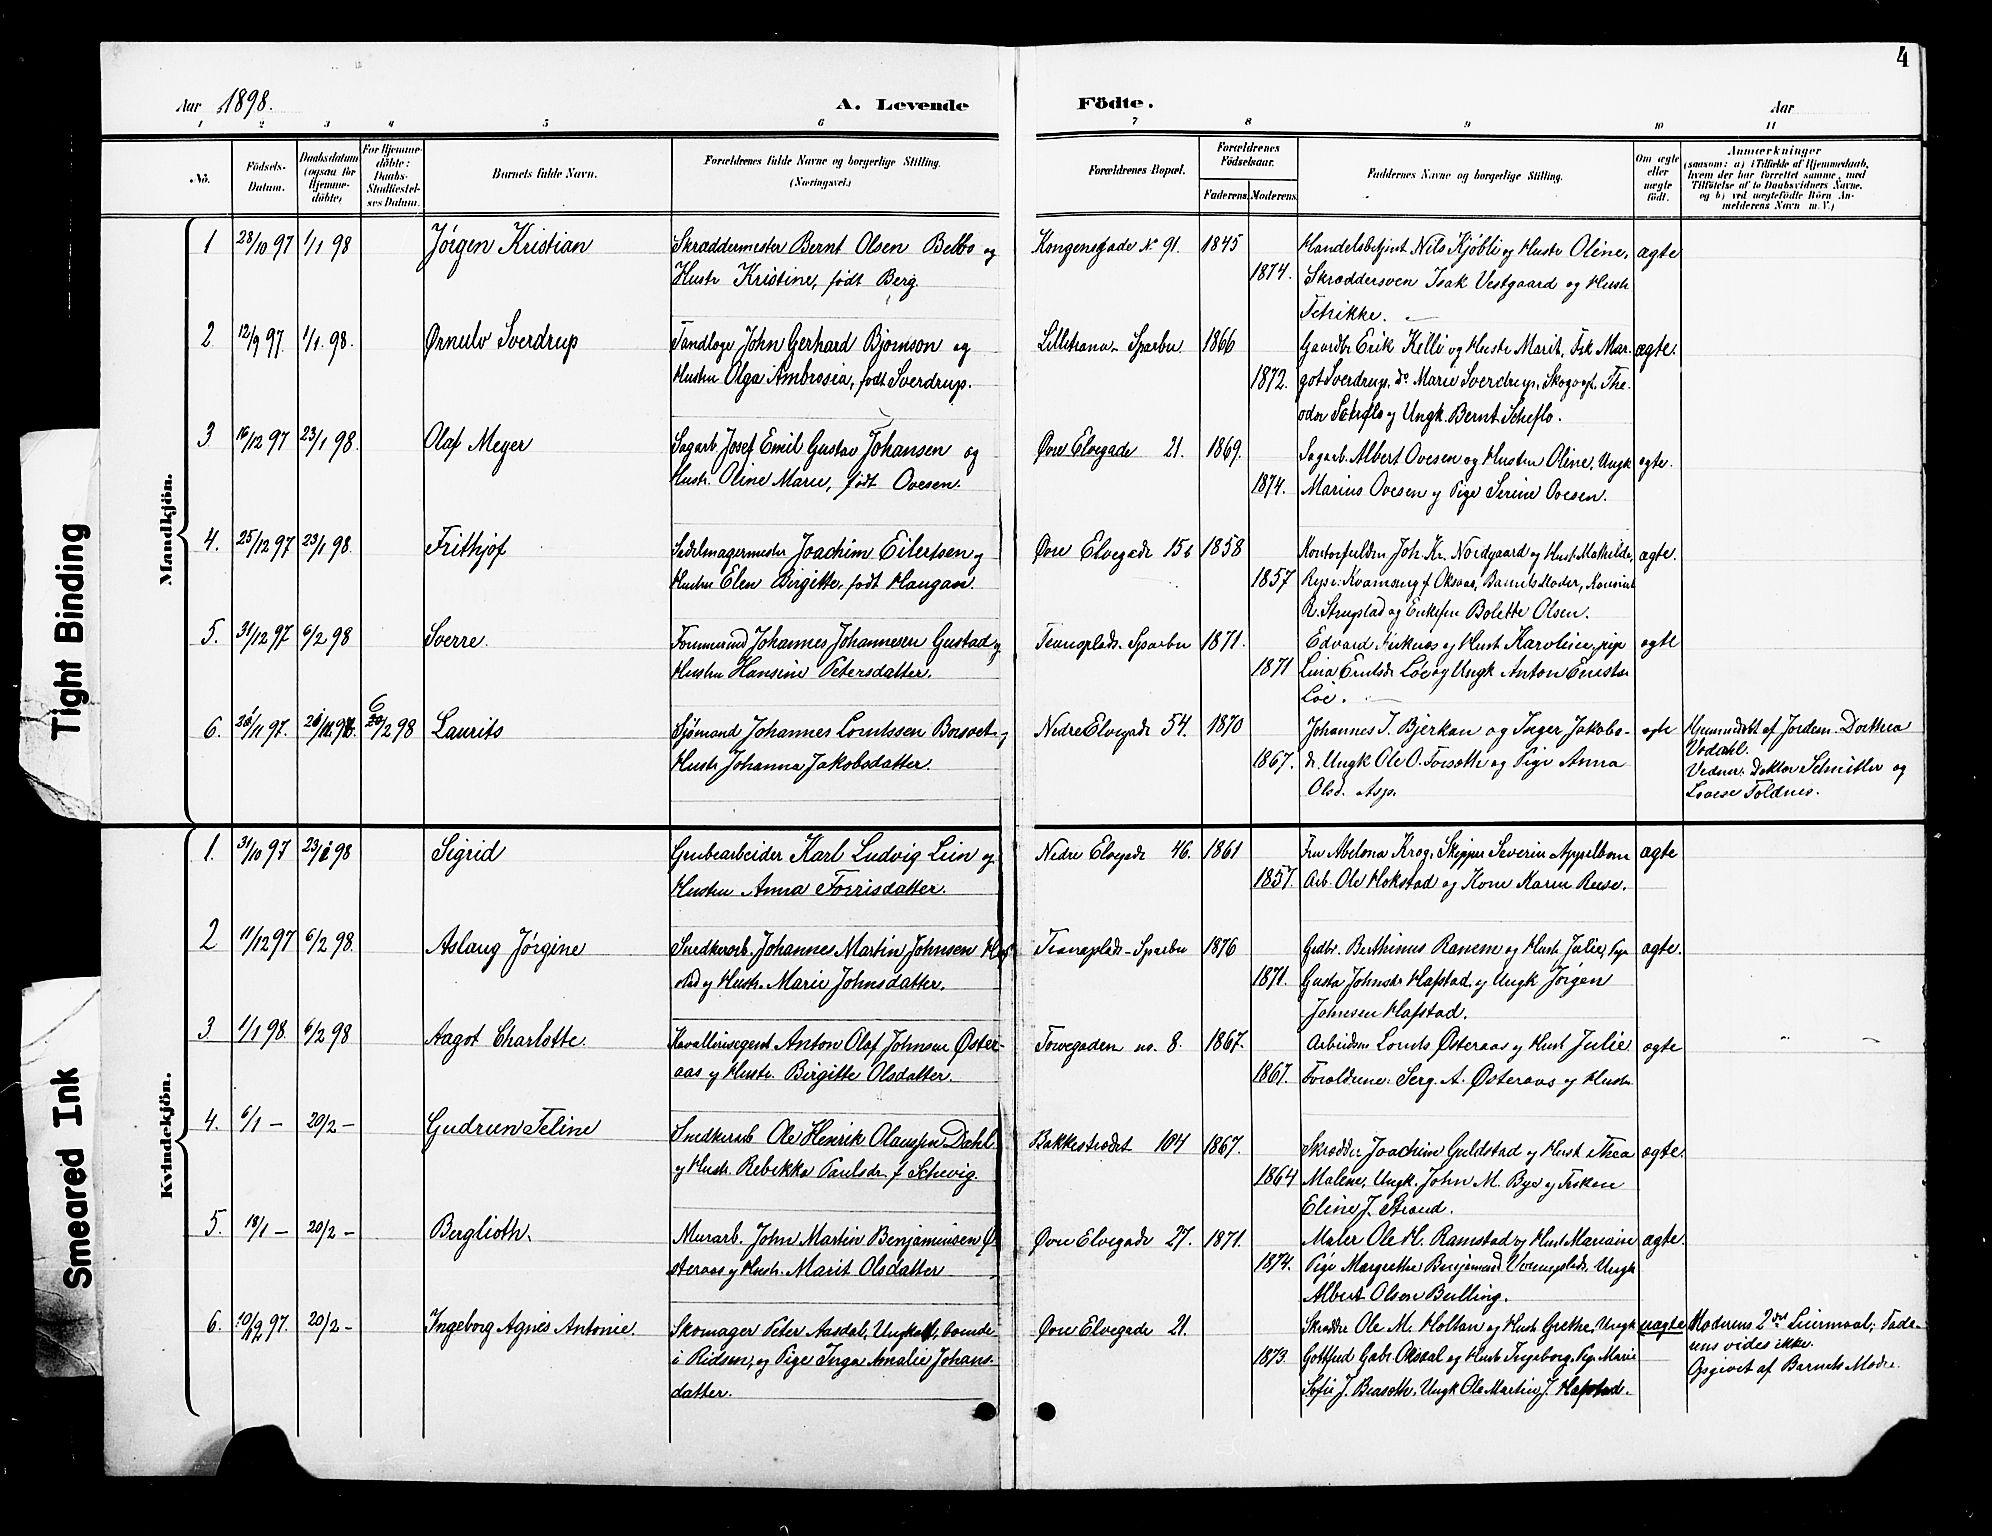 4
Aar 1898.
A. Levende Födte.
Aar
1 2 3 4 5 6 7 8 9 10 11
No.
Födsels-
Datum.
Daabsdatum
(ogsaa for
Hjemme-
döbte)
For Hjemme-
döbte:
Daabs-
Stadfæstel-
ses Datum.
Barnets fulde Navn.
Forældrenes fulde Navne og borgerlige Stilling.
(Næringsvei.)
Forældrenes Bopæl.
Forældrenes
Födselsaar.
Faderens. Moderens.
Faddernes Navne og borgerlige Stilling.
Om ægte
eller
uægte
födt.
Anmærkninger
(saasom: a) i Tilfælde af Hjemmedaab,
hvem der har forrettet samme, med
Tilföielse af to Daabsvidners Navne,
og b) ved uægtefödte Börn An-
melderens Navn m. V.)
Mandkjön.
1 28/10 97 1/1 98 Jörgen Kristian
Skræddermester Bernt Olsen Belbo og
Hustr Kristine, født Berg.
Kongensgade No 91. 1845
1874.
Handelsbetjent Nils Kjøbli og Hustr Oline,
Skræddersven Isak Vestgaard og Hustr
ægte
2 12/9 97. 1/1. 98. Ørnulv Sverdrup
Tandlæge John Gerhard Bjørnson og
Hustru Olga Ambrosia, født Sverdrup.
Sparbu 1866
1872.
Gaardbr Erik Kelli og Hustr Marit, Frk Mar-
got Sverdrup, do Marie Sverdrup, Skogvgt. The-
odor og Ungk. Bernt Scheflo.
ægte.
3 16/12 97 23/1 98. Olaf Meyer
Sagarb. Josef Emil Gustav Johansen og
Hustr. Oline Marie, født Ovesen.
Øvre Elvegade 21. 1869.
1874.
Sagarb. Albert Ovesen og Hustru Oline, Ungk
Marius Ovesen og Pige Serine Ovesen.
ægte.
4. 25/12 97 23/1 98. Frithjof
Sadelmagermester Joachim Eilertsen og
Hustru Elen Birgitte, født Haugan.
Øvre Elvegade 15b 1858
1857
Joh. Kr. Nordgaard og Hust. Mathilde,
Barnets Moder,
R. Strugstad og Enkefru Bolette Olsen.
ægte.
5. 31/12 97 6/2 98 Sverre.
Tømmermd Johannes Johannesen Gustad og
Hustru Hansine Petersdatter.
Sparbu 1871.
1871
Edvard og Hust Karoline, pige
Løe og Ungk Anton
Løe.
ægte
6. 97. 6 /2 98 Laurits
Sjømand Johannes og
Hustr Johanna Jakobsdatter.
Nedre Elvegade 54. 1870
1867.
Johannes J. Bjerkan og Inger Jakobs-
d. Ungk Ole O. Forsoth og Pige Anna
Olsd. Asp.
ægte
Hjemmedøbt af Jordem. Dorthea
Vodahl.
Vidner: Doktor Schnitler og
Lovise Foldnes.
Kvindekjön.
1. 31/10 97 23/1 98 Sigrid
Grubearbeider Karl Ludvig Lein og
Hustru Anna Torrisdatter.
Nedre Elvegade 46. 1861
1857.
Fru Abelona Krog, Skipper Severin Appelbom
Arb. Ole Hokstad og Kone Karen Reese.
ægte
2 11/12 97 6/2 98. Aslaug Jörgine
Snedkerarb. Johannes Martin Johnsen Haf-
stad og Hustr. Marie Johnsdatter.
Sparbu 1876
1871.
Grdbr. Berthinus Ranem og Hust Julie, Pige
Gusta Johnsdr Hafstad, og Ungk Jörgen
Johnsen Hafstad.
ægte.
3 1/1 98. 6/2 98 Aagot Charlotte.
Kavallerisergent Anton Olaf Johnsen Øster-
aas og Hustr. Birgitte Olsdatter.
Torvegaden no. 8. 1867.
1867.
Østeraas og Hust Julie
Forældrene: Serg. A. Østeraas og Hustr
ægte
4. 6/1 — 20/2 — Gudrun Feline
Snedkerarb Ole Henrik Olaussen Dahl
og Hustr. Rebekka Paulsdr f. Schevig.
Bakkestrædet 104 1867.
1864
Skrædder Joachim Guldstad og Hust Thea
Malene, Ungk. John M. Bye og
Eline J. Strand.
ægte.
5. 18/1 — 20/2 — Berglioth.
Murarb. John Martin Benjaminsen Ø-
steraas og Hustr. Marit Olsdatter
Øvre Elvegade 27. 1871.
1874.
Maler Ole H. Ramstad og Hust Mariane
Pige Margrethe Ungk
Albert Olsen Bulling.
ægte.
6. 97. 20/2 — Ingeborg Agnes Antonie.
Skomager Peter Aasdal, Ungkarl, boende
i Ridsem, og Pige Inga Amalie Johans-
datter.
Øvre Elvegade 21.
1873.
Skrædr Ole M. Holtan og Hust Grethe, Ungk
Gottfred Gabr. Oksval og Hust Ingeborg, Pige Marie
Sofie J. Ungk Ole Martin J. Hafstad.
uægte
Moderens 2det Leiermaal; Fade-
rens vides ikke.
Opgivet af Barnets Moder.
Tight Binding
Smeared Ink